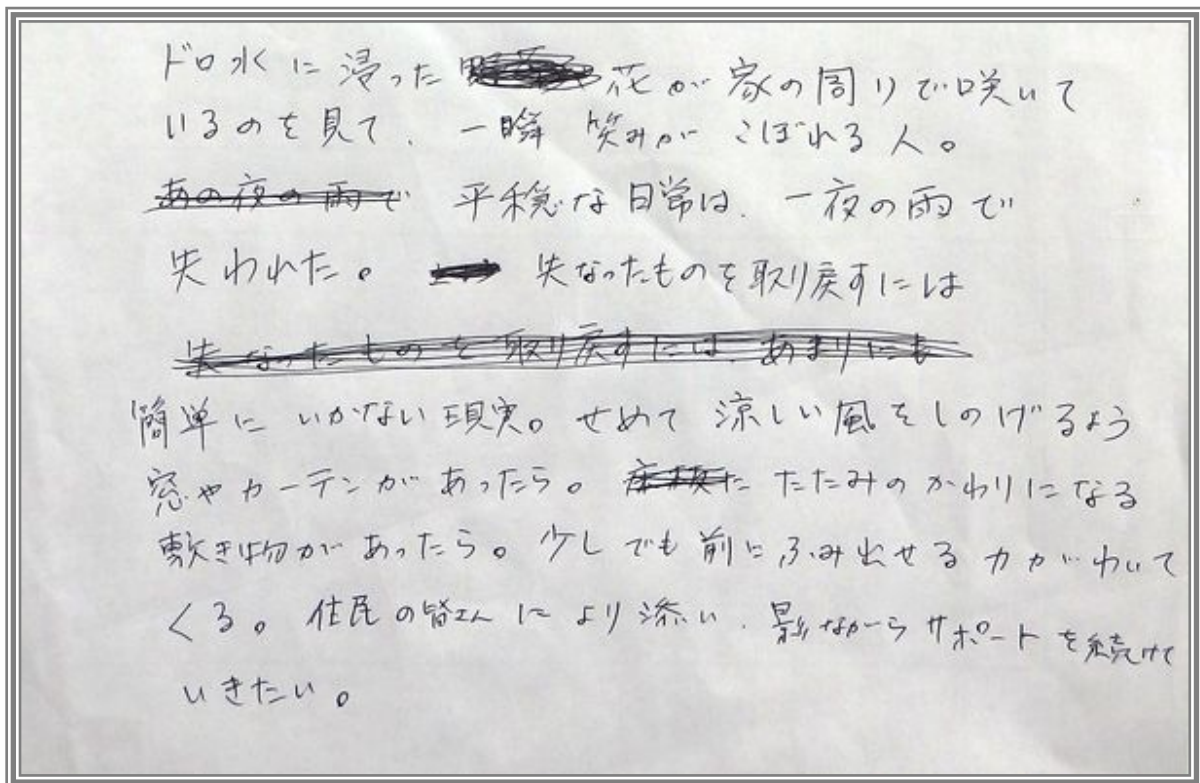 ドロ水に浸った 花が家の周りで咲いて
いるのを見て、一瞬 笑みが こぼれる人。
あの夜の雨で 平穏な日常は、一夜の雨で
失われた。 失なったものを取り戻すには
失なったものを取り戻すには、あまりにも
簡単に いかない現実。せめて 涼しい風をしのげるよう
窓やカーテンがあったら。 たたみのかわりになる
敷き物があったら。少しでも前にふみ出せる力がわいて
くる。住民の皆さんにより添い、影ながらサポートを続けて
いきたい。